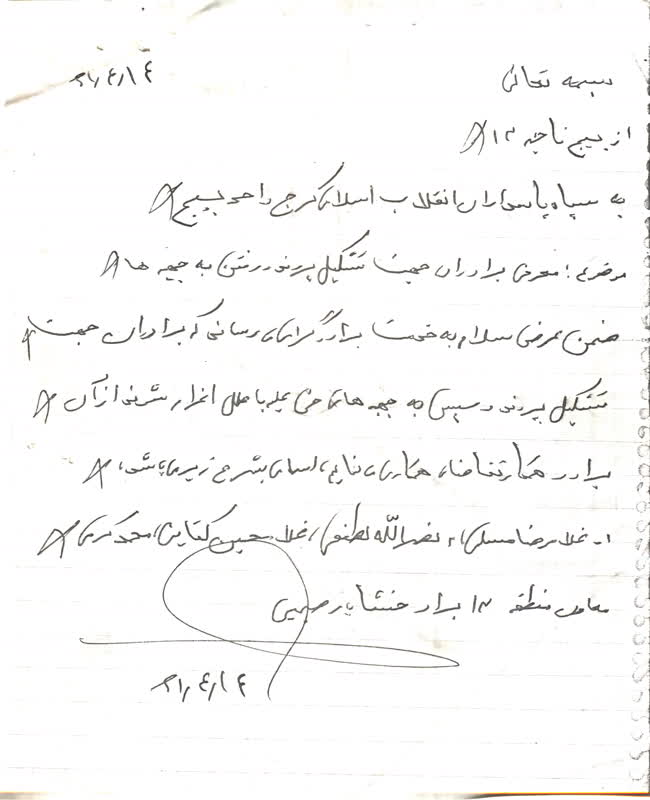 بسمه تعالی
۶۱/۴/۱۴
از بسیج ناحیه ۱۲
به سپاه پاسداران انقلاب اسلامی کرج واحد بسیج
موضوع: معرفی برادران جهت تشکیل پرونده رفتن به جبهه ها
ضمن عرض سلام به خدمت برادر گرامی می رسانی که برادران جهت
تشکیل پرونده و سپس به جبهه های حق علیه باطل اعزام شوند از آن
برادر همکار تقاضای همکاری اسامی بشرح زیر می باشد
۱- غلامرضا نصرالله لطفی غلامحسین محمد کرمی
معاون منطقه ۱۲ برادر
۶۱/۴/۱۴